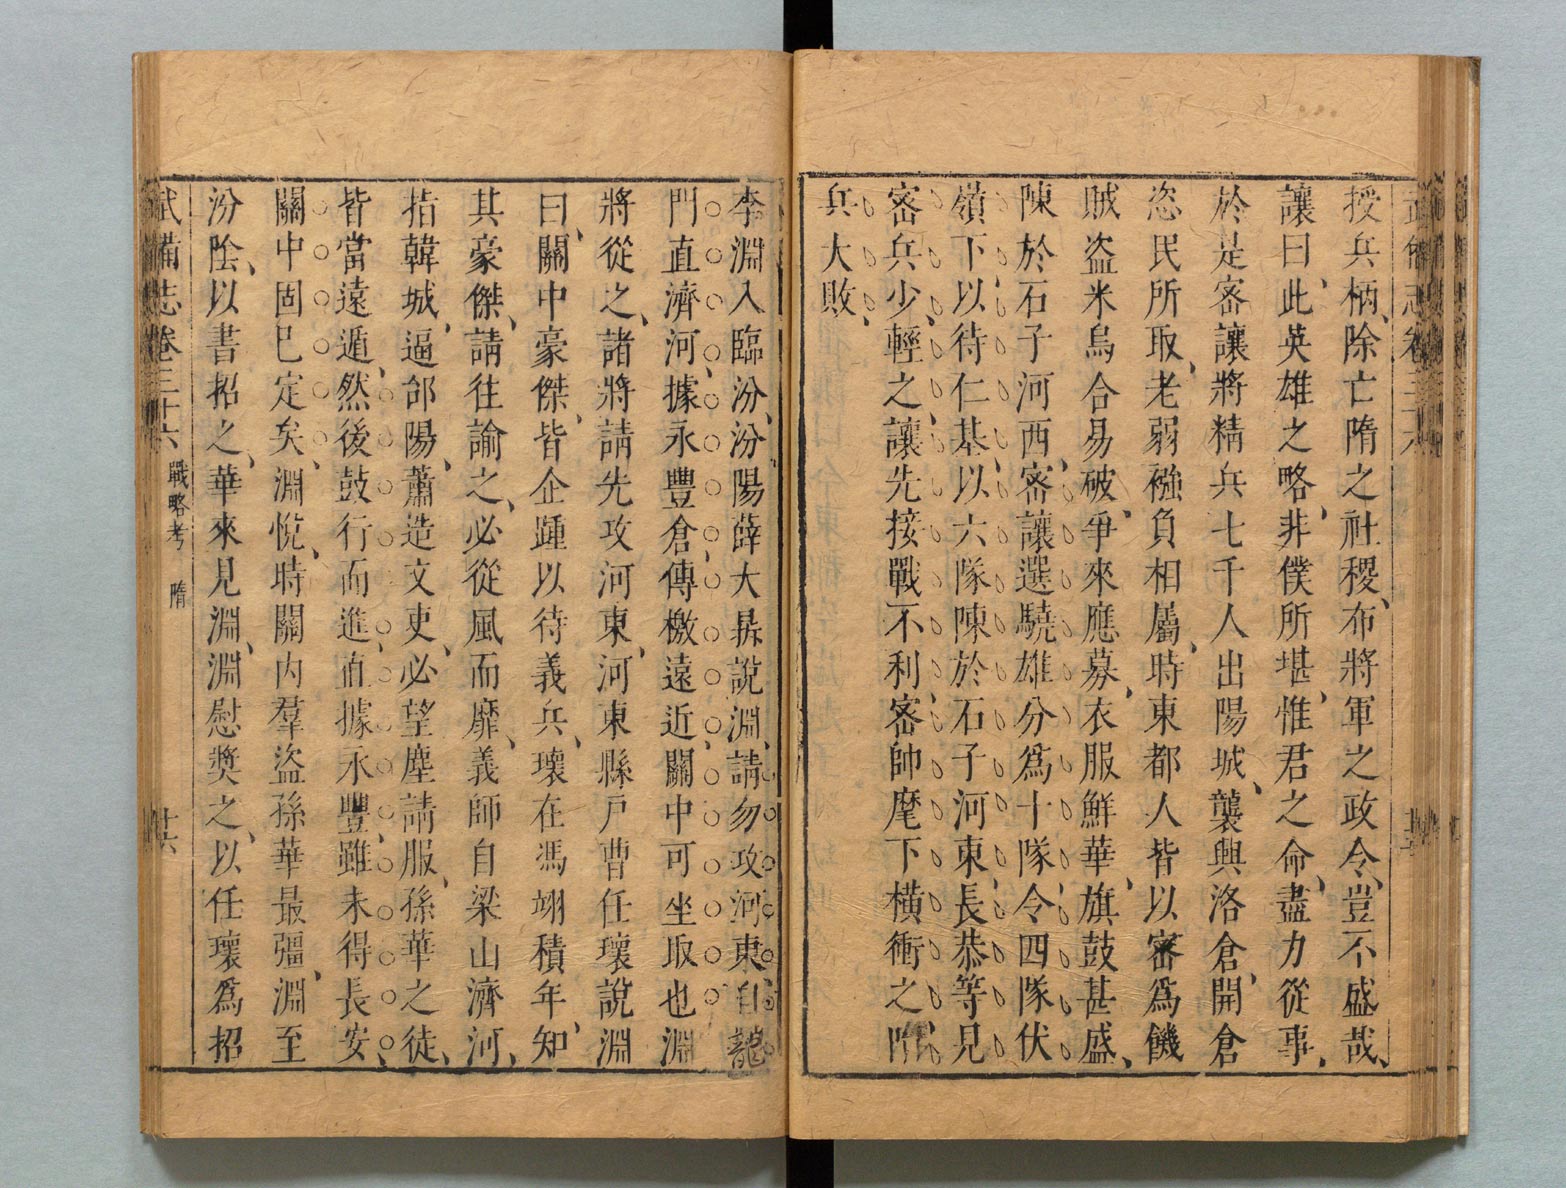 武備志卷三十六
授兵柄、除亡隋之社稷、布將軍之政令、豈不盛哉、
讓曰、此英雄之略、非僕所堪、惟君之命、盡力從事、
於是密讓將精兵七千人出陽城、襲興洛倉、開倉
恣民所取、老弱襁負相屬、時東都人皆以密爲饑
賊盜米烏合易破、爭來應募、衣服鮮華、旗鼓甚盛、
陳於石子河西、密讓選驍雄分爲十隊、令四隊伏
嶺下、以待仁基、以六隊陳於石子河東、長恭等見
密兵少、輕之、讓先接戰不利、密帥麾下橫衝之、隋
兵大敗、
李淵入臨汾、汾陽薛大鼎說淵、請勿攻河東、自龍
門直濟河、據永豐倉、傳檄遠近、關中可坐取也淵
將從之、諸將請先攻河東、河東縣戸曹任瓌說淵
曰、關中豪傑、皆企踵以待義兵、瓌在馮翊積年、知
其豪傑、請往諭之、必從風而靡、義師自梁山濟河、
指韓城、逼郃陽、蕭造文吏、必望塵請服、孫華之徒、
皆當遠遁、然後鼓行而進、直據永豐、雖未得長安、
關中固已定矣、淵悅、時關內羣盜孫華最彊、淵至
汾陰、以書招之、華來見淵、淵慰奬之、以任瓌爲招
武備志卷三十六 戰略考 隋 廿六